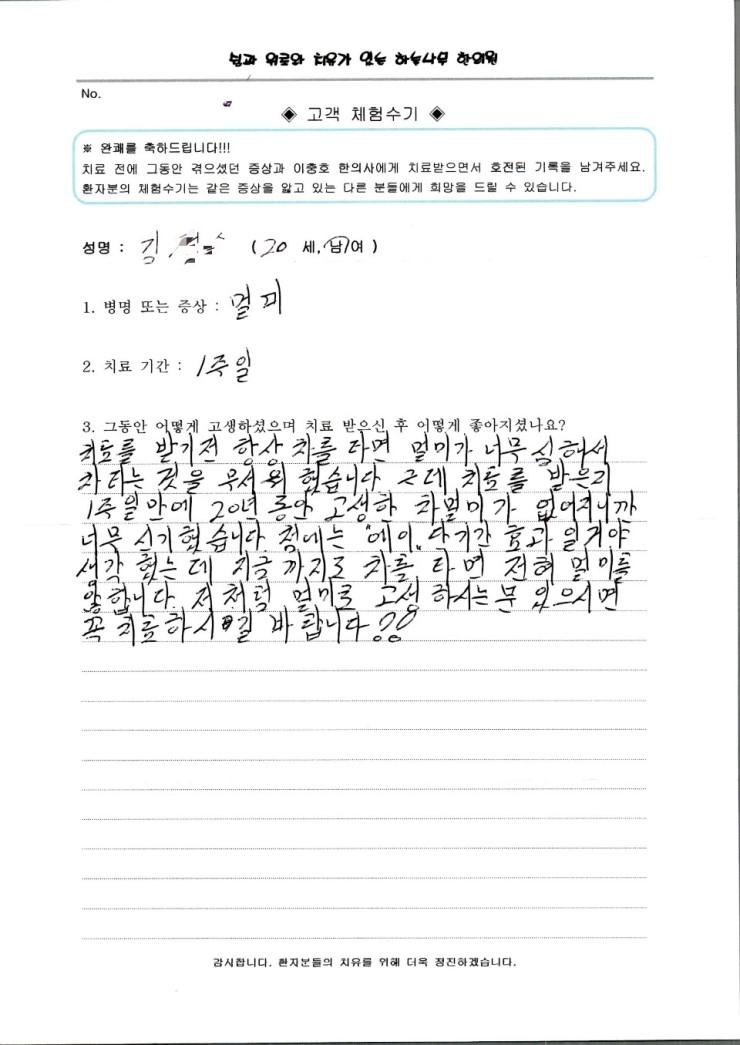 No.
◈ 고객 체험수기 ◈
※ 완쾌를 축하드립니다!!!
치료 전에 그동안 겪으셨던 증상과 이충호 한의사에게 치료받으면서 호전된 기록을 남겨주세요.
환자분의 체험수기는 같은 증상을 앓고 있는 다른 분들에게 희망을 드릴 수 있습니다.
성명 : 김 ( 20 세, 남/여 )
1. 병명 또는 증상 : 멀미
2. 치료 기간 : 1주일
3. 그동안 어떻게 고생하셨으며 치료 받으신 후 어떻게 좋아지셨나요?
치료를 받기전 항상 차를 타면 멀미가 너무 심해서
차 타는 것을 무서워 했습니다 근데 치료를 받은지
1주일만에 20년 동안 고생한 차멀미가 없어지니까
너무 신기했습니다. 첨에는 "에이" 단기간 효과 일거야
생각 했는데 지금 까지도 차를 타면 전혀 멀미를
않합니다. 저 처럼 멀미로 고생 하시는 분 있으시면
꼭 치료하시길 바랍니다 !!
감사합니다. 환자분들의 치유를 위해 더욱 정진하겠습니다.